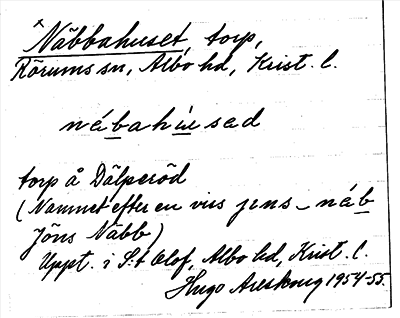 × Näbbahuset, torp,
Rörums sn, Albo hd, Krist. l.
nábahúsad
torp å Dälperöd
(Namnet efter en viss jens-náb
Jöns Näbb)
Uppt. i S:t Olof, Albo hd, Krist. l.
Hugo Areskoug 1954-55.